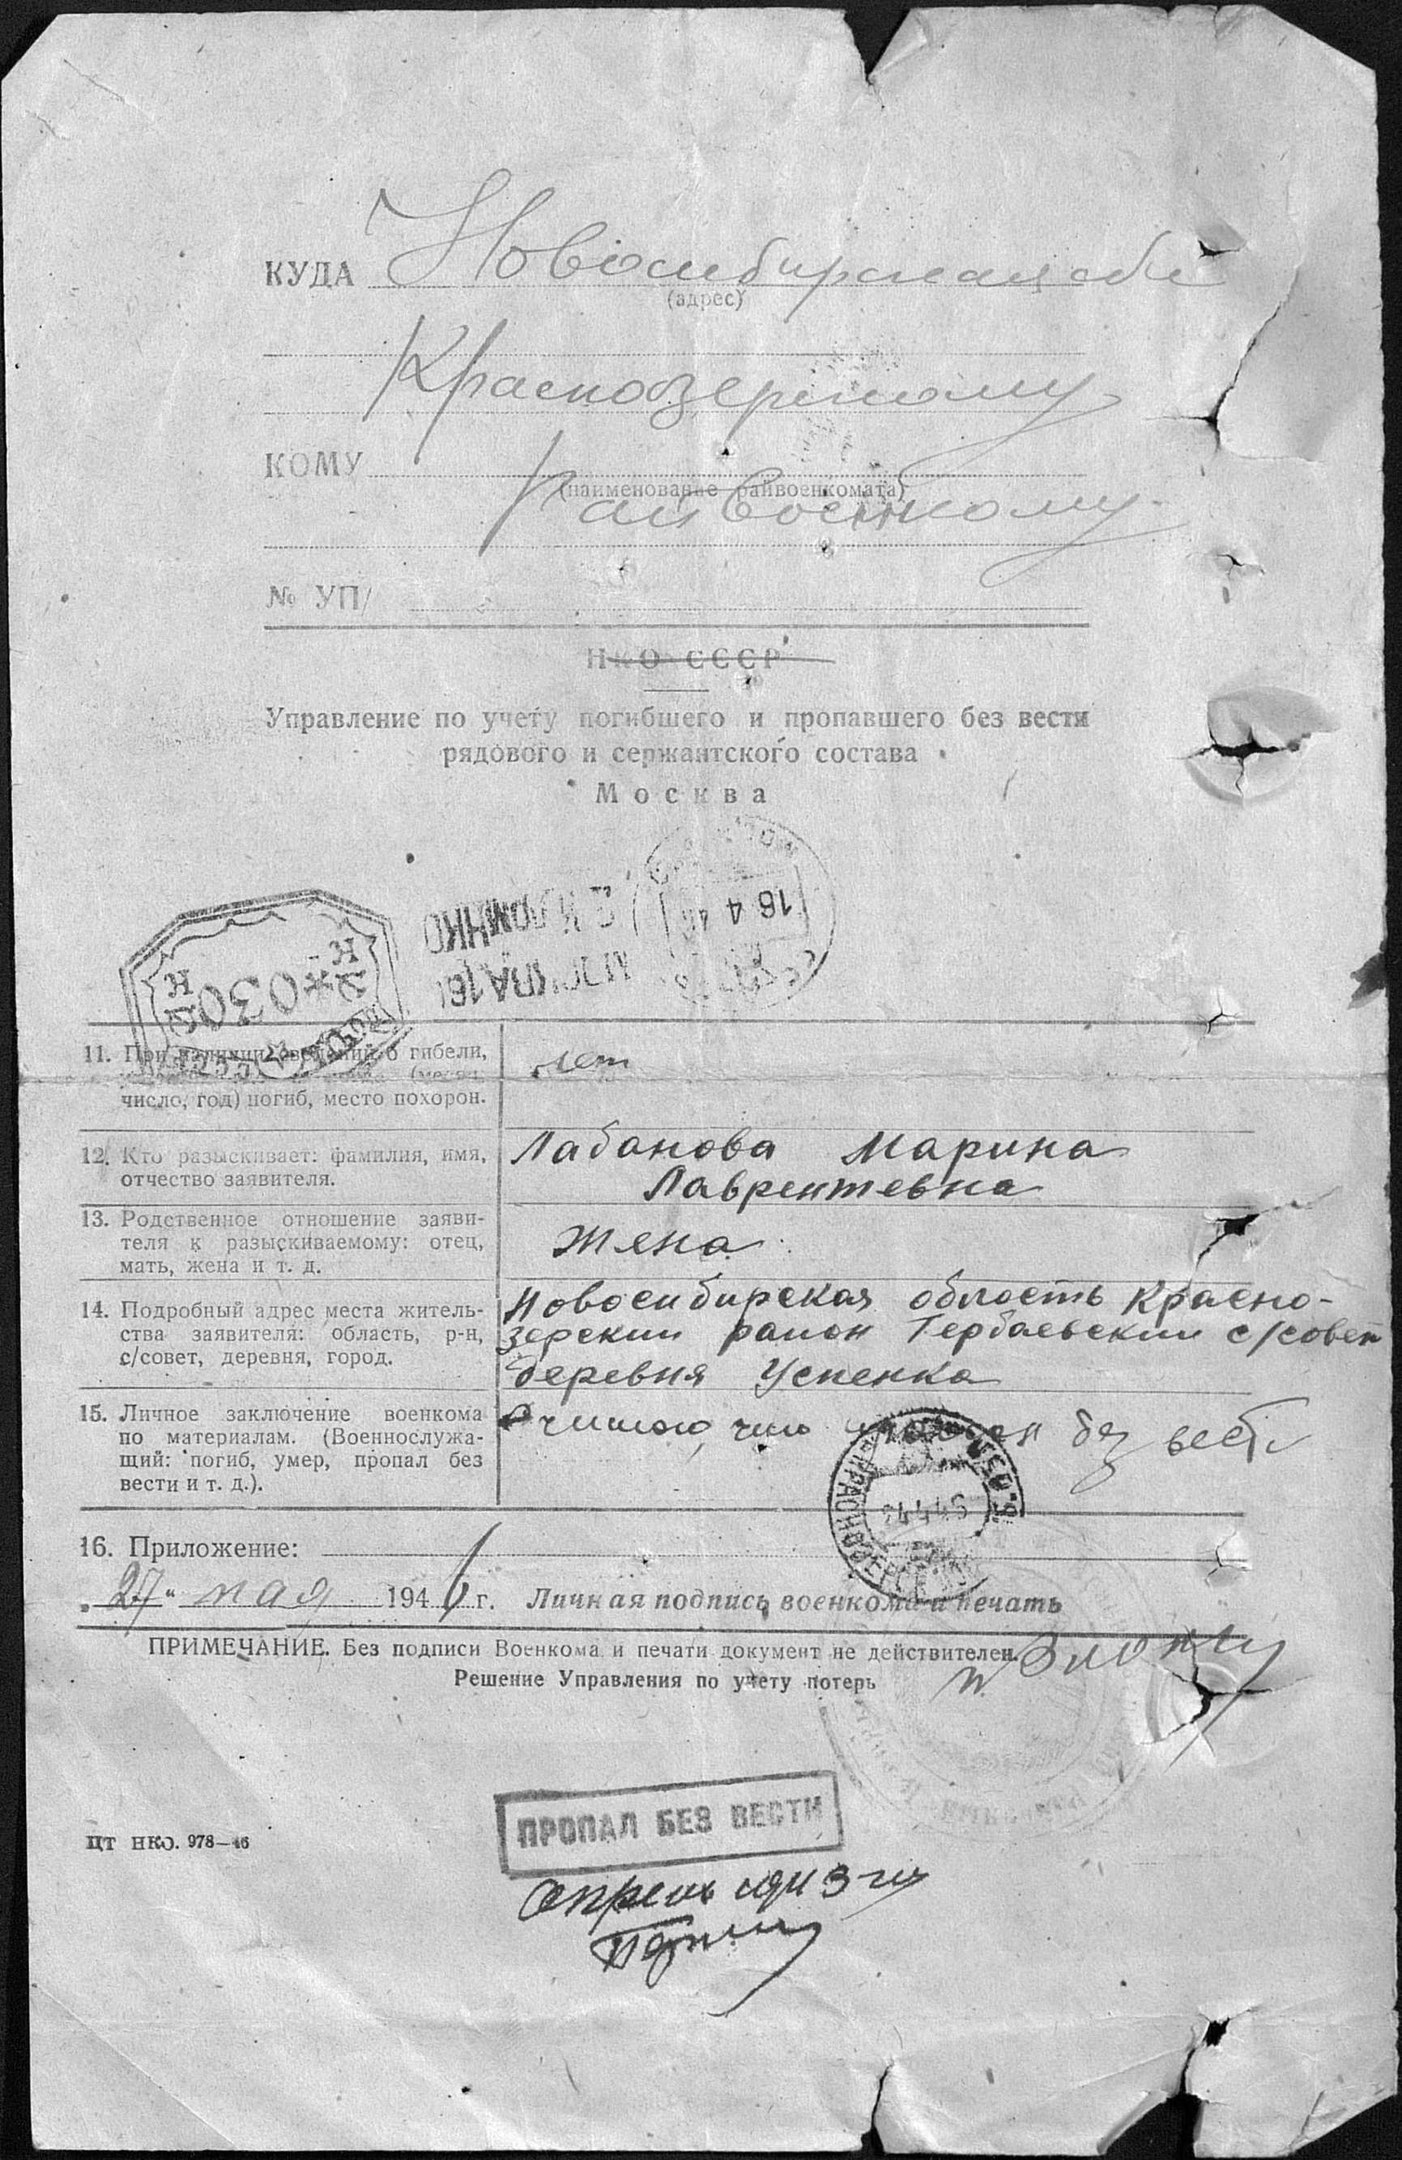 КУДА Новосибирская обл
(адрес)
Краснозерскому
КОМУ
(наименование райвоенкомата)
Райвоенкому
№ УП/
НКО СССР
Управление по учету погибшего и пропавшего без вести
рядового и сержантского состава
Москва
16 4 46
МОСКВА
030
11. При наличии сведений о гибели,
число, год) погиб, место похорон.
нет
12. Кто разыскивает: фамилия, имя,
отчество заявителя.
Лабанова Марина
Лаврентевна
13. Родственное отношение заяви-
теля к разыскиваемому: отец,
мать, жена и т. д.
Жена
14. Подробный адрес места житель-
ства заявителя: область, р-н,
с/совет, деревня, город.
Новосибирская область Красно-
зерский район Гербаевский с/совет
деревня Успенка
15. Личное заключение военкома
по материалам. (Военнослужа-
щий: погиб, умер, пропал без
вести и т. д.).
без вести
16. Приложение:
„27“ мая 1946 г. Личная подпись военкома и печать
ПРИМЕЧАНИЕ. Без подписи Военкома и печати документ не действителен.
Решение Управления по учету потерь
ПРОПАЛ БЕЗ ВЕСТИ
апрель
ЦТ НКО. 978—46